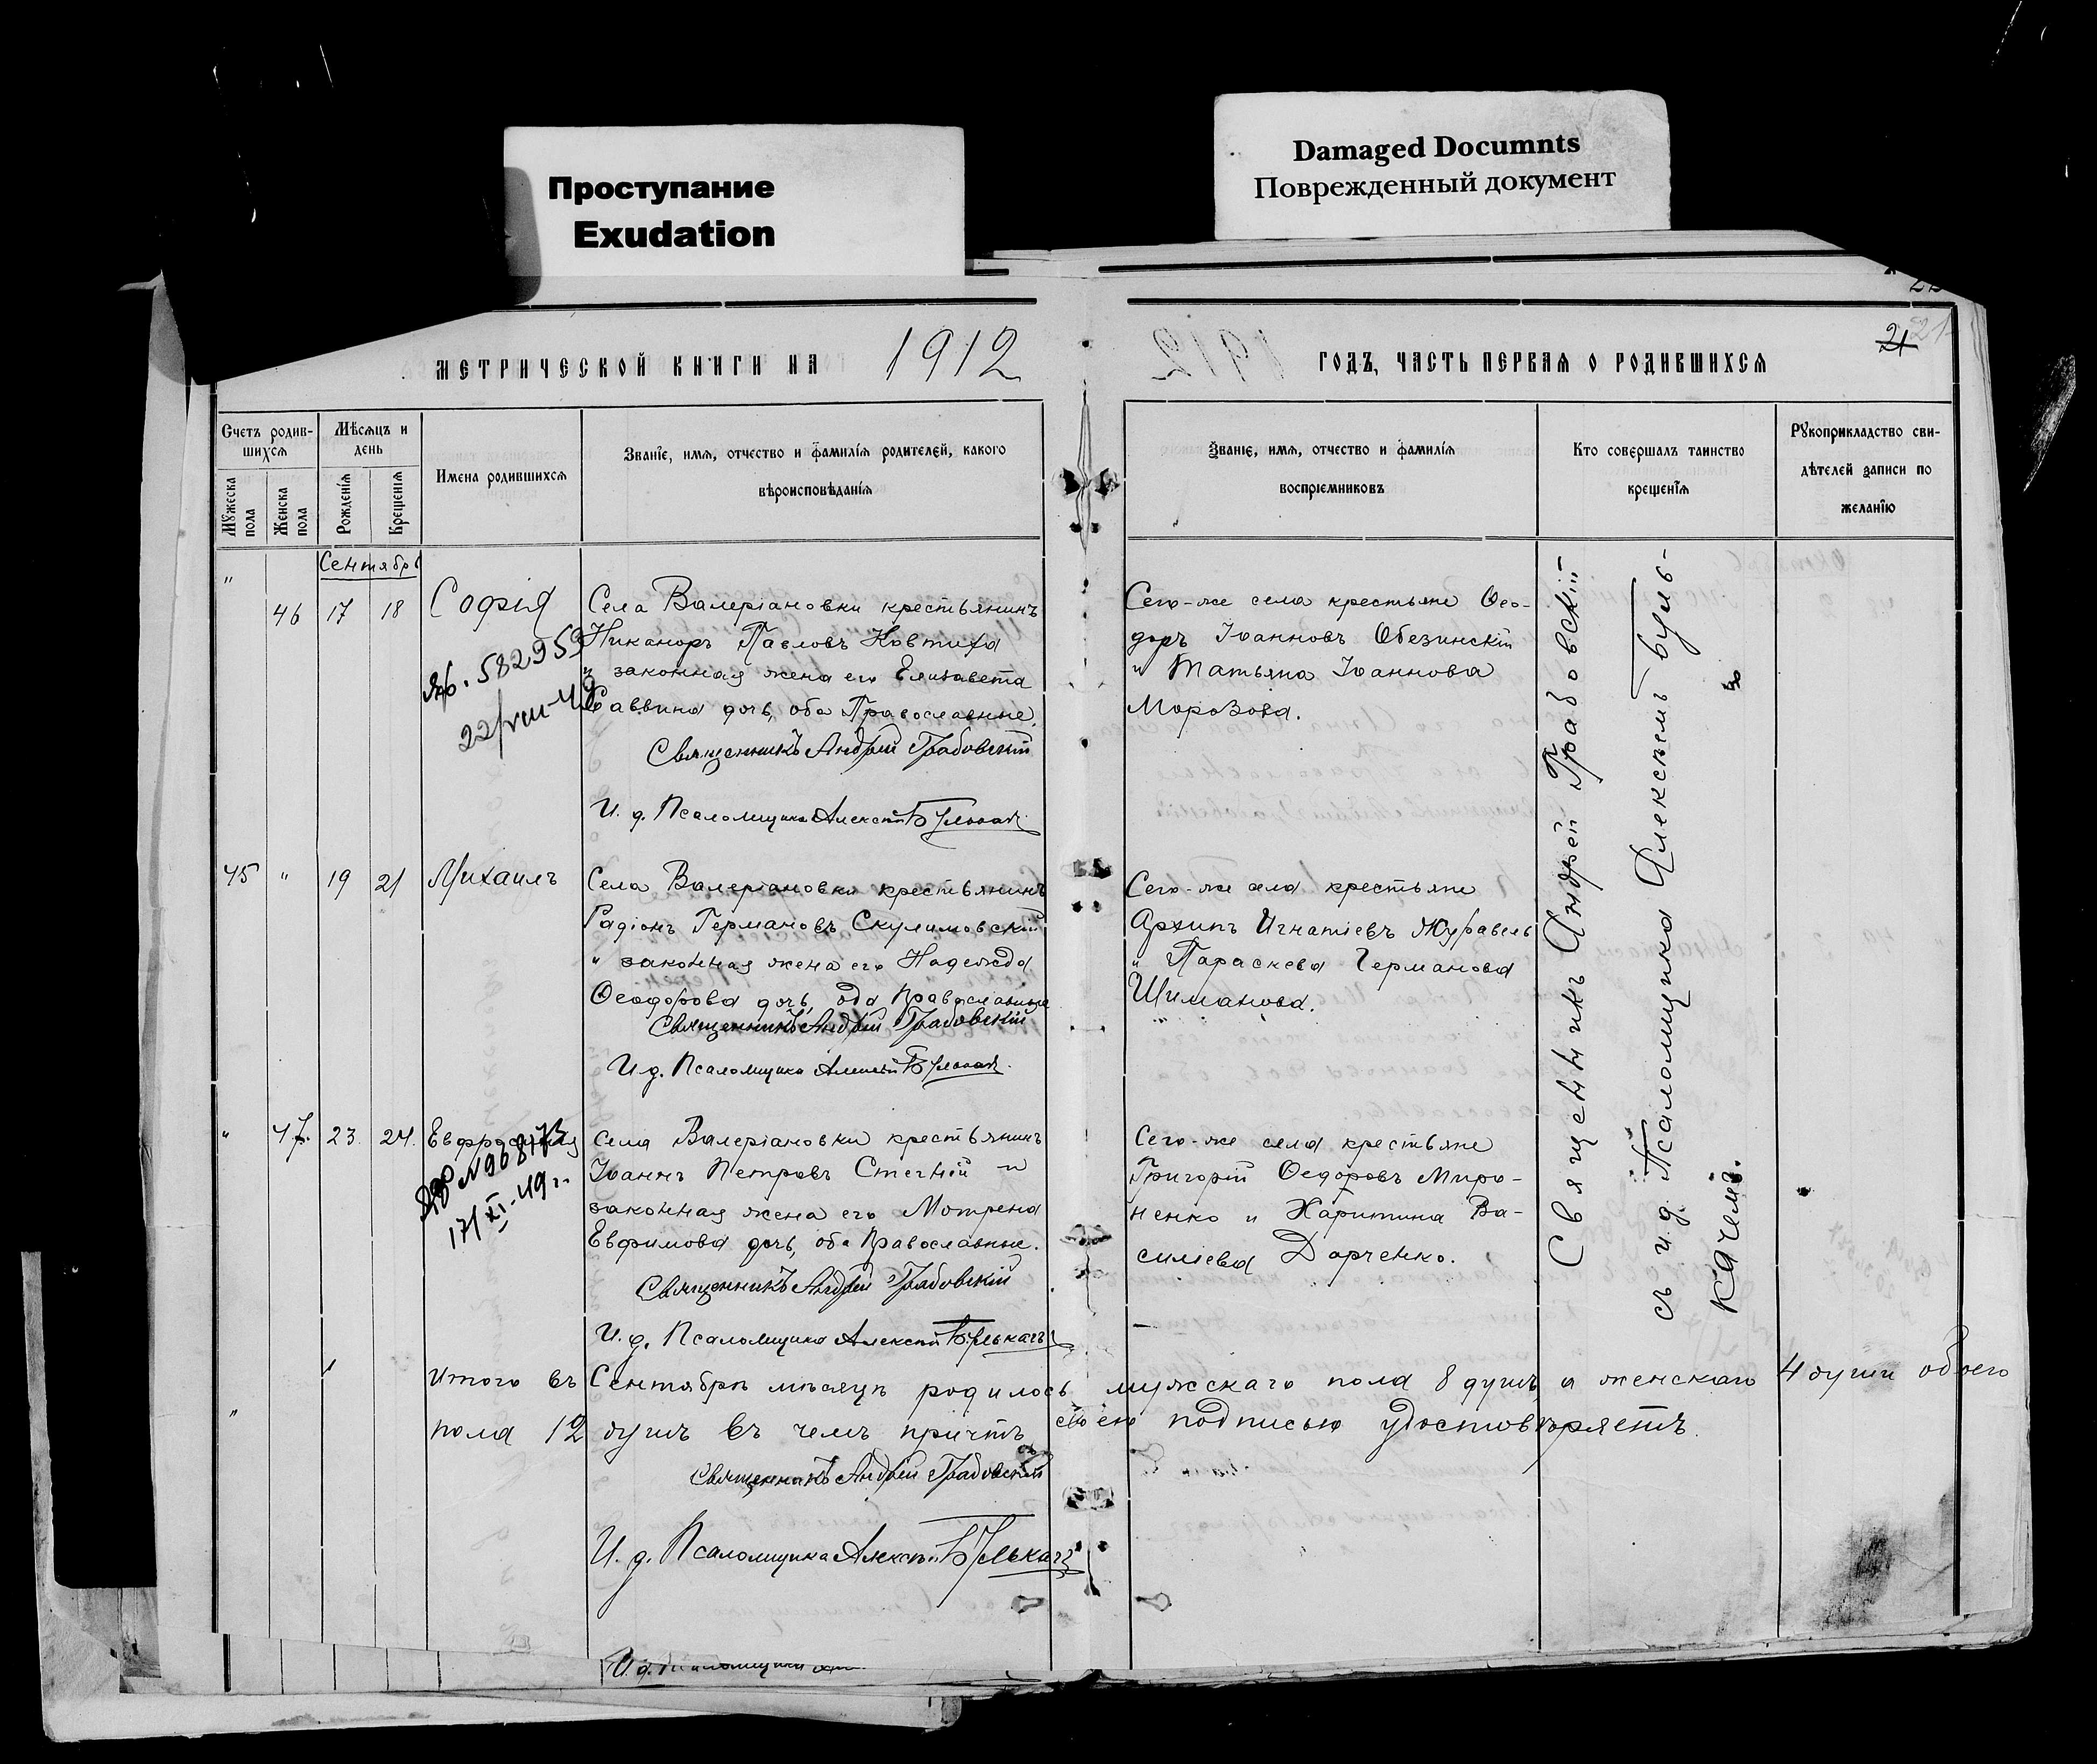 Проступание
Exudation
Damaged Documnts
Поврежденный документ
МЕТРИЧЕСКОЙ КНИГИ НА 1912
ГОДЪ, ЧАСТЬ ПЕРВАЯ О РОДИВШИХСЯ
21
21
Счетъ родив-
шихся
Мужеска пола
Женска пола
Мѣсяцъ и
день
Рожденія
Крещенія
Имена родившихся
Званіе, имя, отчество и фамилія родителей, какого
вѣроисповѣданія
Званіе, имя, отчество и фамилія
воспріемниковъ
Кто совершалъ таинство
крещенія
Рукоприкладство сви-
дѣтелей записи по
желанію
Сентябрь
" 46 17 18 Софія
582953
22/VIII-49
Села Валеріановки крестьянинъ
Никаноръ Павловъ Ковтуха
и законная жена его Елизавета
Саввина дочь, оба Православные.
Священникъ Андрей Грабовскій
И. д. Псаломщика Алексѣй Булькачъ
Сего-же села крестьяне Ѳео-
доръ Іоанновъ Обезинскій
и Татьяна Іоаннова
Морозова.
45 " 19 21 Михаилъ
Села Валеріановки крестьянинъ
Радіонъ Германовъ Скулимовскій
и законная жена его Надежда
Ѳеодорова дочь, оба Православные
Священникъ Андрей Грабовскій
И. д. Псаломщика Алексѣй Булькачъ.
Сего-же села крестьяне
Архипъ Игнатіевъ Журавель
и Параскева Германова
Шиманова.
" 47. 23. 24. Евфросинія
№968173
17/XI-49 г.
Села Валеріановки крестьянинъ
Іоаннъ Петровъ Стегній и
законная жена его Мотрена
Евфимова дочь, оба Православные.
Священникъ Андрей Грабовскій
И. д. Псаломщика Алексѣй Булькачъ
Сего-же села крестьяне
Григорій Ѳедоровъ Миро-
ненко и Харитина Ва-
силіева Дорченко.
Священникъ Андрей Грабовскій
съ и. д. Псаломщика Алексѣемъ Буль-
качемъ.
Итого въ Сентябрѣ мѣсяцѣ родилось мужскаго пола 8 душъ а женскаго 4 души обоего
пола 12 душъ въ чемъ причтъ своею подписью удостовѣряетъ.
Священникъ Андрей Грабовскій
И. д. Псаломщика Алексѣй Булькачъ
И. д. Псаломщика